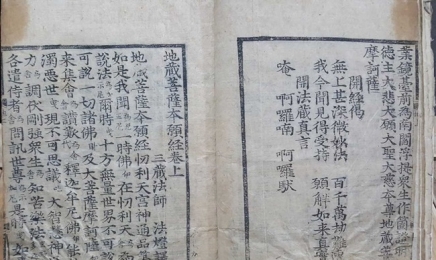 業鏡臺前爲南閻浮提衆生作箇證明
德主大悲大願大聖大慈本尊地藏菩
摩訶薩
開經偈
無上甚深微妙法 百千萬劫難遭
我今聞見得受持 願解如來眞實
開法藏眞言
唵 阿羅喃 阿羅馱
地藏菩薩本願經卷上
三藏法師 法燈譯
地藏菩薩本願經忉利天宮神通品第
如是我聞 一時佛 在忉利天 
說法 爾時 十方無量世界不可說
可說 一切諸佛 及大菩薩摩訶薩
來集會 讚歎 釋迦牟尼佛 能
濁惡世 現不可思議 大智慧神
力 調伏剛强衆生 知苦樂法
各遣侍者 問訊世尊 是時 如